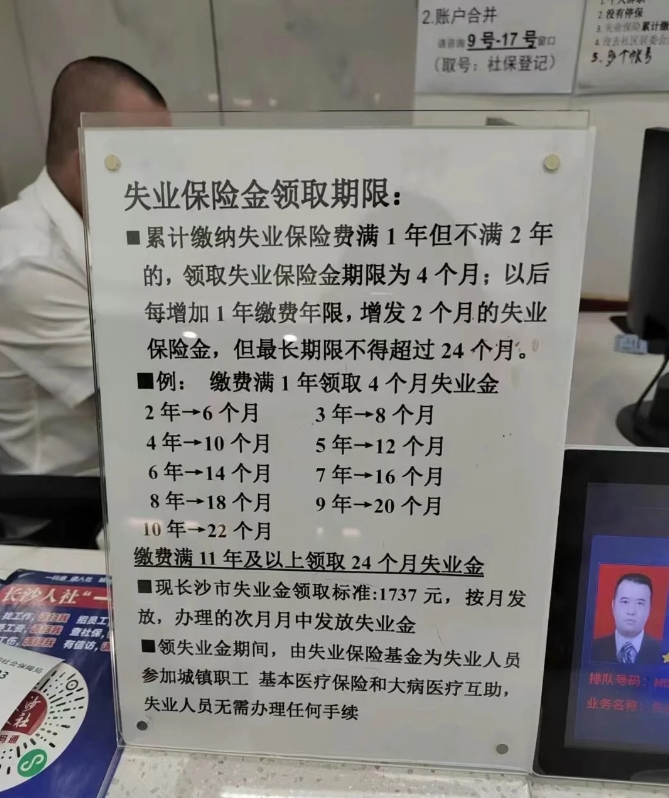 2.账户合并
请咨询9号-17号窗口
(取号：社保登记)
2.没有停保
3.失业保险累计缴
5.多个帐号
失业保险金领取期限：
■累计缴纳失业保险费满1年但不满2年
的，领取失业保险金期限为4个月；以后
每增加1年缴费年限，增发2个月的失业
保险金，但最长期限不得超过24个月。
■例： 缴费满1年领取4个月失业金
2年→6个月 3年→8个月
4年→10个月 5年→12个月
6年→14个月 7年→16个月
8年→18个月 9年→20个月
10年→22个月
缴费满11年及以上领取24个月失业金
■现长沙市失业金领取标准:1737元，按月发
放，办理的次月月中发放失业金
■领失业金期间，由失业保险基金为失业人员
参加城镇职工 基本医疗保险和大病医疗互助，
失业人员无需办理任何手续
长沙人社“一
找工作，请找我 招员工
查社保，
有信访，
排队号码：
业务名称：